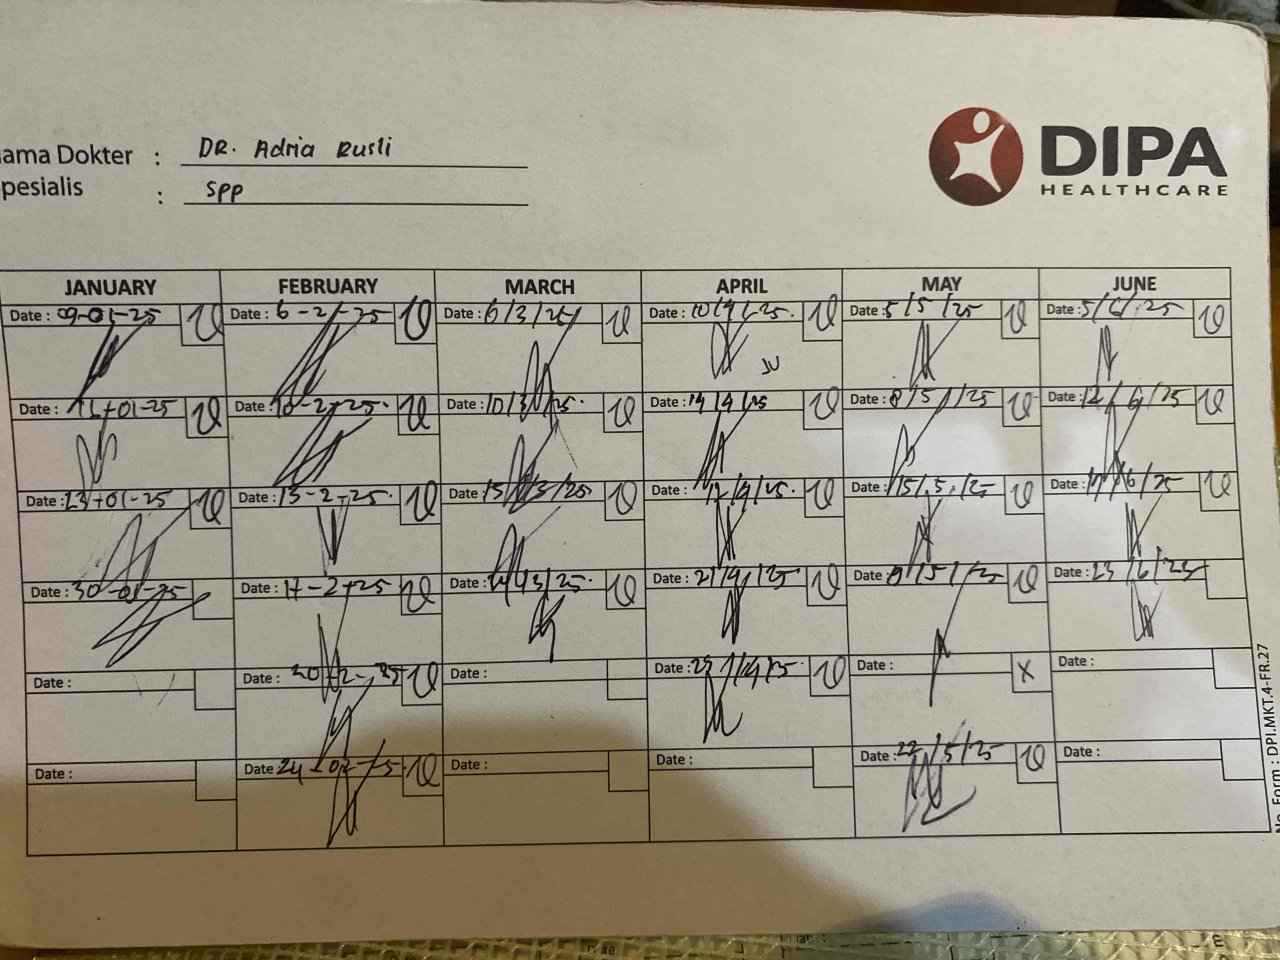 ama Dokter : DR. Adria Rusli
pesialis : Spp
DIPA
HEALTHCARE
JANUARY FEBRUARY MARCH APRIL MAY JUNE
Date : 09-01-25 Date : 6-2-25 Date : 6/3/25 Date : 10/4/25. Date : 5/5/25 Date : 5/6/25
Date : 16-01-25 Date : 10-2-25. Date : 10/3/25. Date : 14/4/25 Date : 8/5/25 Date : 12/6/25
Date : 23-01-25 Date : 13-2-25. Date : 13/3/25. Date : 17/4/25. Date : 15/5/25 Date : /6/25
Date : 30-01-25 Date : 17-2-25 Date : /3/25. Date : 21/4/25. Date : /5/25 Date : 23/6/25
Date : Date : 20-2-25 Date : Date : /4/25 Date : X Date :
Date : Date : 24-02-25. Date : Date : Date : 22/5/25 Date :
No. Form : DPI.MKT.4-FR.27